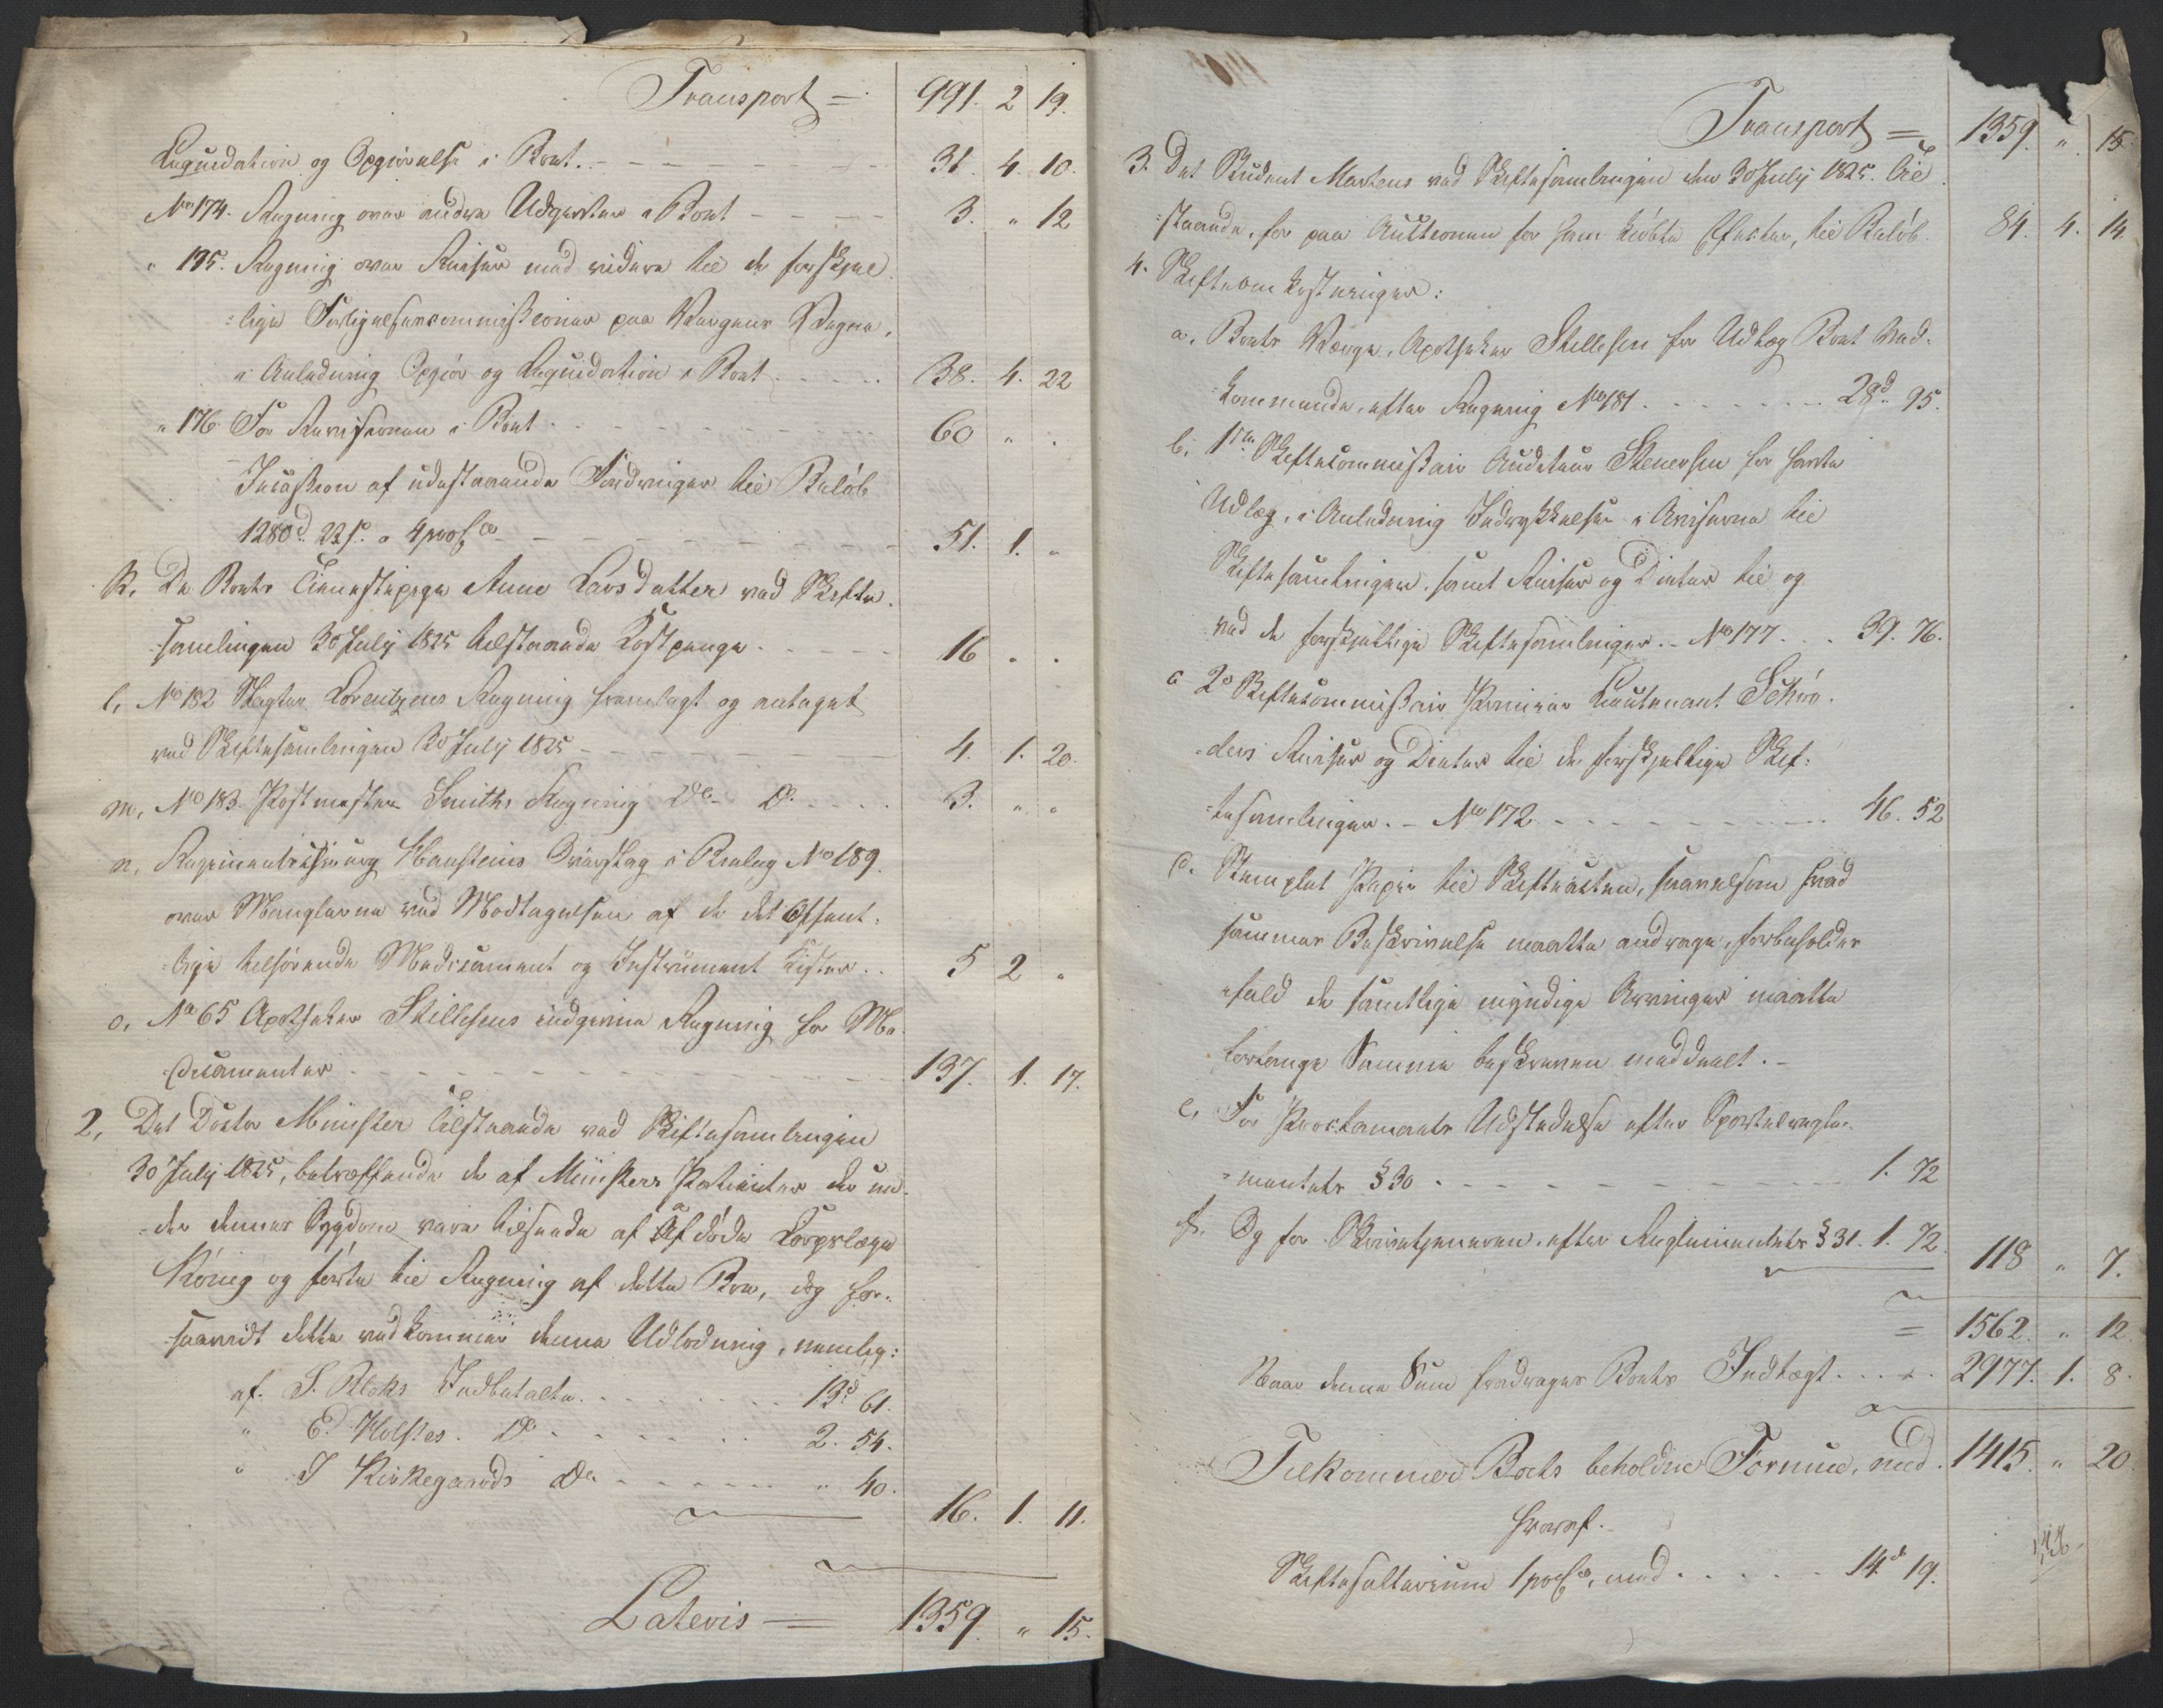 Transport = 991. 2 19.
Liquidation og Opgiørelse i Boet. 31. 4. 10.
No 174. Regning over andre Udgivter i Boet 3. " 12
" 175. Regning over Reiser med videre til de forskjæl
=lige Forligelsescommissioner paa Vegne,
i Anledning Opgiør og Liquidation i Boet 38. 4. 22
" 176. For Revisionen i Boet 60 " .
Incassion af udestaaende Fordringer til Beløb
1280d 22s. a 4 proCto 51. 1. "
k, De Boets Tienestepige Anne Larsdatter ved Skifte=
=samlingen 30 July 1825 tilstaaede Kostpenge 16 . .
l, No 182 Slagter Lorentzens Regning fremlagt og antaget
ved Skiftesamlingen 30 July 1825 4. 1. 20.
m, No 183. Postmester Smiths Regning Do Do 3. " "
n, Regimentschirurg Hansteins Overslag i Bilag No 189.
over Manglerne ved Modtagelsen af de det Offent=
=lige tilhørende Medicament og Instrument Kister 5 2 "
o, No 65 Apotheker Stillesens indgivne Regning for Me=
=dicamenter 137. 1. 17.
2, Det Doctor Münster tilstaaede ved Skiftesamlingen
30 July 1825, betræffende de af Münsters Patienter der un=
=der dennes Sygdom vare tilseede af Afdøde Corpslæge
König og førte til Regning af dette Boe, dog for=
=saavidt dette vedkommer denne Udlodning, nemlig:
af. S. Bloks Indbetalte 13d 61.
" E. Holstes. Do 2. 54.
" J Kirkegaards Do " 40.
16. 1. 11.
Lateris = 1359. " 15.
Transport = 1359. " 15.
3. Det Student Martens ved Skiftesamlingen den 30 July 1825 til
=staaede, for paa Auctionen for ham kiøbte Effecter, til Beløb. 84. 4. 14.
4. Skifteomkostninger:
a. Boets Værge, Apotheker Stillesen for Udlæg Boet ved=
=kommende, efter Regning No 181 28d 95.
b, 1ste Skiftecommissair Auditeur Stenersen for havte
Udlæg, i Anledning Indrykkelse i Aviserne til
Skiftesamlinger, samt Reiser og Diæter til og
ved de forskjællige Skiftesamlinger. - No 177 39. 76.
c 2d Skiftecommissair Premier Lieutenant Schrø=
=ders Reiser og Diæter til de forskjellige Skif=
=tesamlinger. - No 172 46. 52
d. Stemplet Papir til Skifteacten, saavelsom hvad
sammes Beskrivelse maatte andrage, forbeholdes
ifald de samtlige myndige Arvinger maatte
forlange Samme beskreven meddeelt. -
e, For Proclamaets Udstedelse efter Sportelregle=
=mentets § 30 1. 72
f. Og for Skrivtjeneren, efter Reglementets § 31. 1. 72
118 " 7.
= 1562. " 12.
Naar denne Sum fradrages Boets Indtægt 2977. 1. 8.
Tilkommer Boets beholdne Formue, med 1415. " 20.
hvoraf.
Skiftesallarium 1 proCto, med 14d 19.